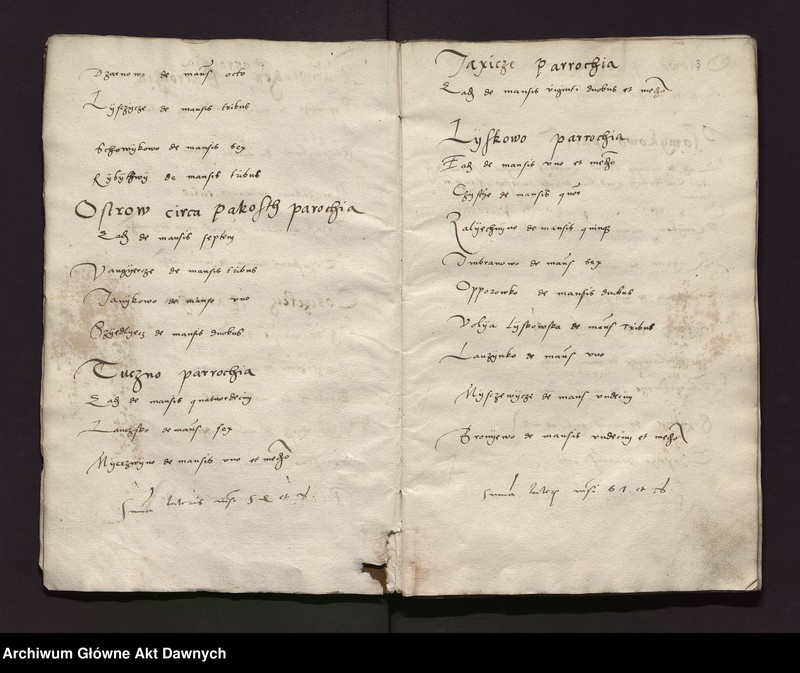 Dzarnowo de mans octo
Lysczycze de mansis tribus
Schowykowo de mansis sex
Rybythwy de mansis tribus
Ostrow circa Pakosth parochia
Eadz de mansis septem
Vangyercze de mansis tribus
Janykowo de manso vno
Szyedlyecz de mansis duobus
Tuczno parrochia
Eadz de mansis quatuordecim
Lanczsko de mans sex
Myerzwyno de mansis vno et medio
Summa lateris mansi
8
Jaxicze parrochia
Eadz de mansis viginti duobus et medio
Lyskowo parrochia
Eadz de mansis vno et medio
Chysthe de mansis quor
Zalyechmyno de mansis quinqz
Dmbranowo de mans sex
Opporowko de mansis duobus
Volya Lyskowska de mans tribus
Lauzynko de mans vno
Mysczewycze de mans vndecim
Bronyewo de mansis vndecim et medio
Summa mansi 61 et
Archiwum Główne Akt Dawnych